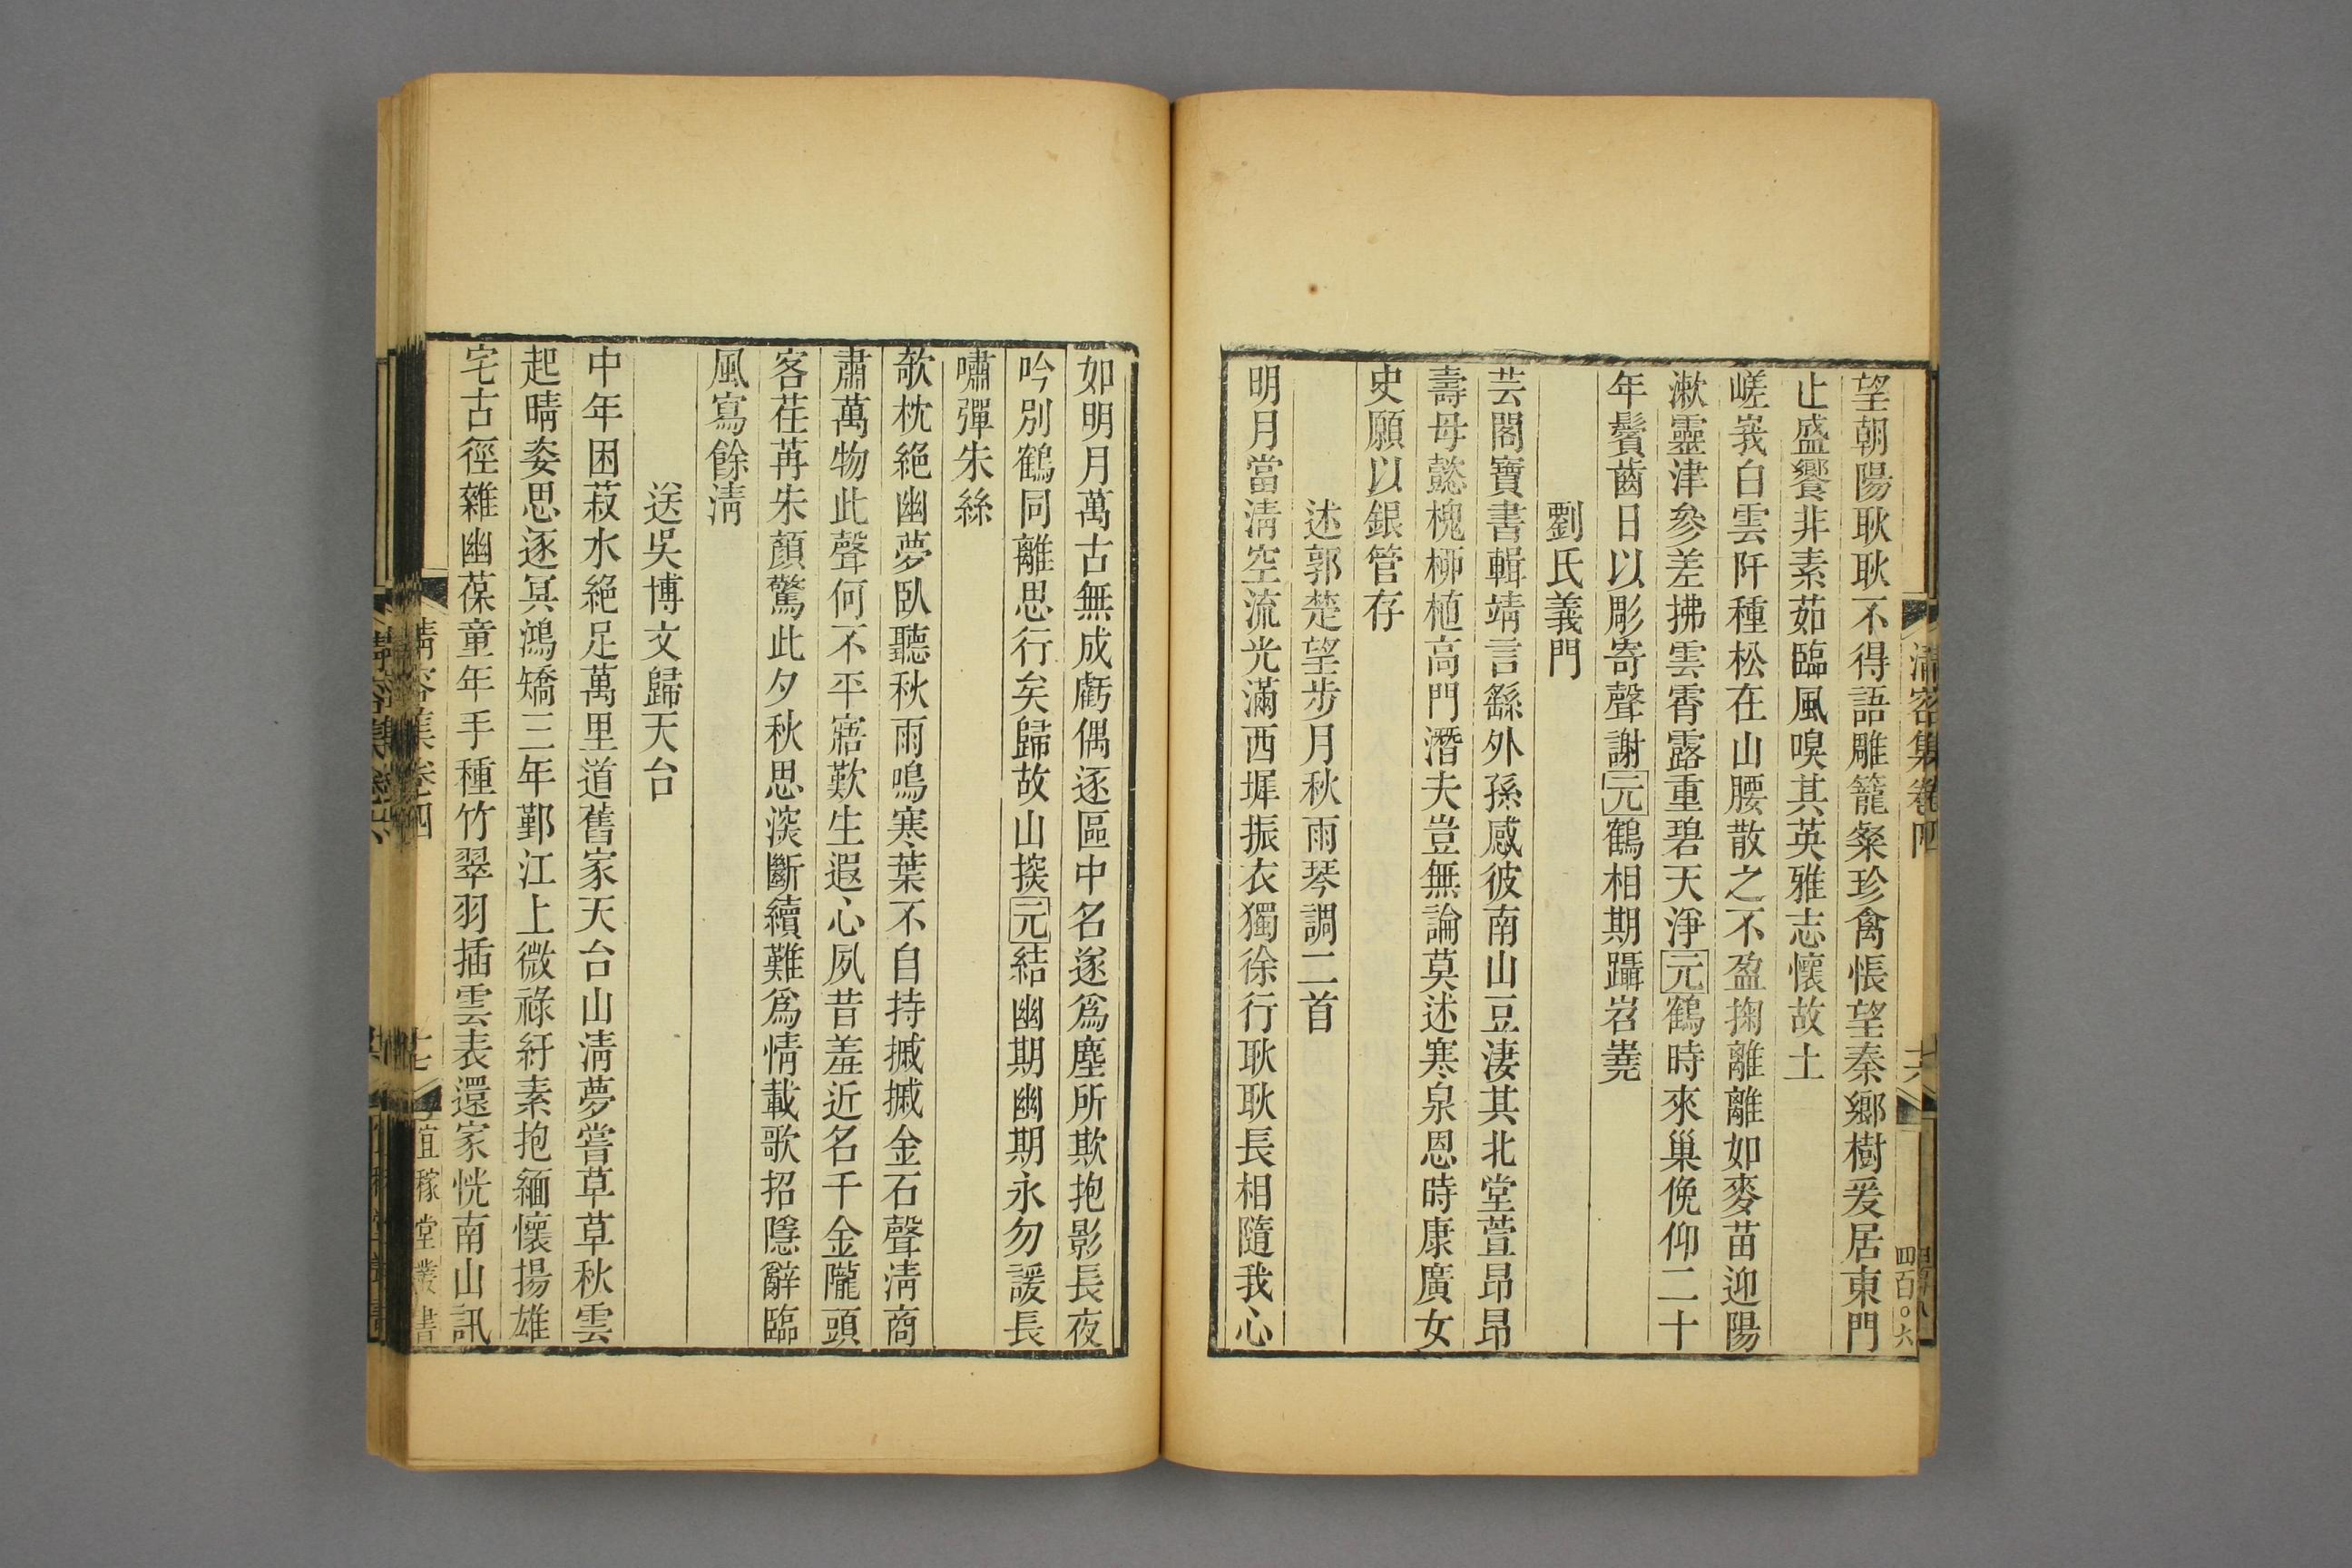 清容集卷四
十六
四百〇六
望朝陽耿耿不得語雕籠粲珍禽悵望秦鄉樹爰居東門
止盛饗非素茹臨風嗅其英雅志懷故土
嵯峩白雲阡種松在山腰散之不盈掬離離如麥苗迎陽
漱靈津參差拂雲霄露重碧天淨元鶴時來巢俛仰二十
年鬢齒日以彫寄聲謝元鶴相期躡岧嶤
劉氏義門
芸閣寶書輯靖言繇外孫感彼南山豆淒其北堂萱昂昂
壽母懿槐柳植高門潛夫豈無論莫述寒泉恩時康廣女
史願以銀管存
述郭楚望步月秋雨琴調二首
明月當清空流光滿西墀振衣獨徐行耿耿長相隨我心
如明月萬古無成虧偶逐區中名遂爲塵所欺抱影長夜
吟別鶴同離思行矣歸故山掞元結幽期幽期永勿諼長
嘯彈朱絲
欹枕絕幽夢臥聽秋雨鳴寒葉不自持摵摵金石聲清商
肅萬物此聲何不平寤歎生遐心夙昔羞近名千金隴頭
客荏苒朱顏驚此夕秋思深斷續難爲情載歌招隱辭臨
風寫餘清
送吳博文歸天台
中年困菽水絕足萬里道舊家天台山清夢嘗草草秋雲
起晴姿思逐冥鴻矯三年鄞江上微祿紆素抱緬懷揚雄
宅古徑雜幽葆童年手種竹翠羽插雲表還家恍南山訊
清容集卷四
十七
宜稼堂叢書